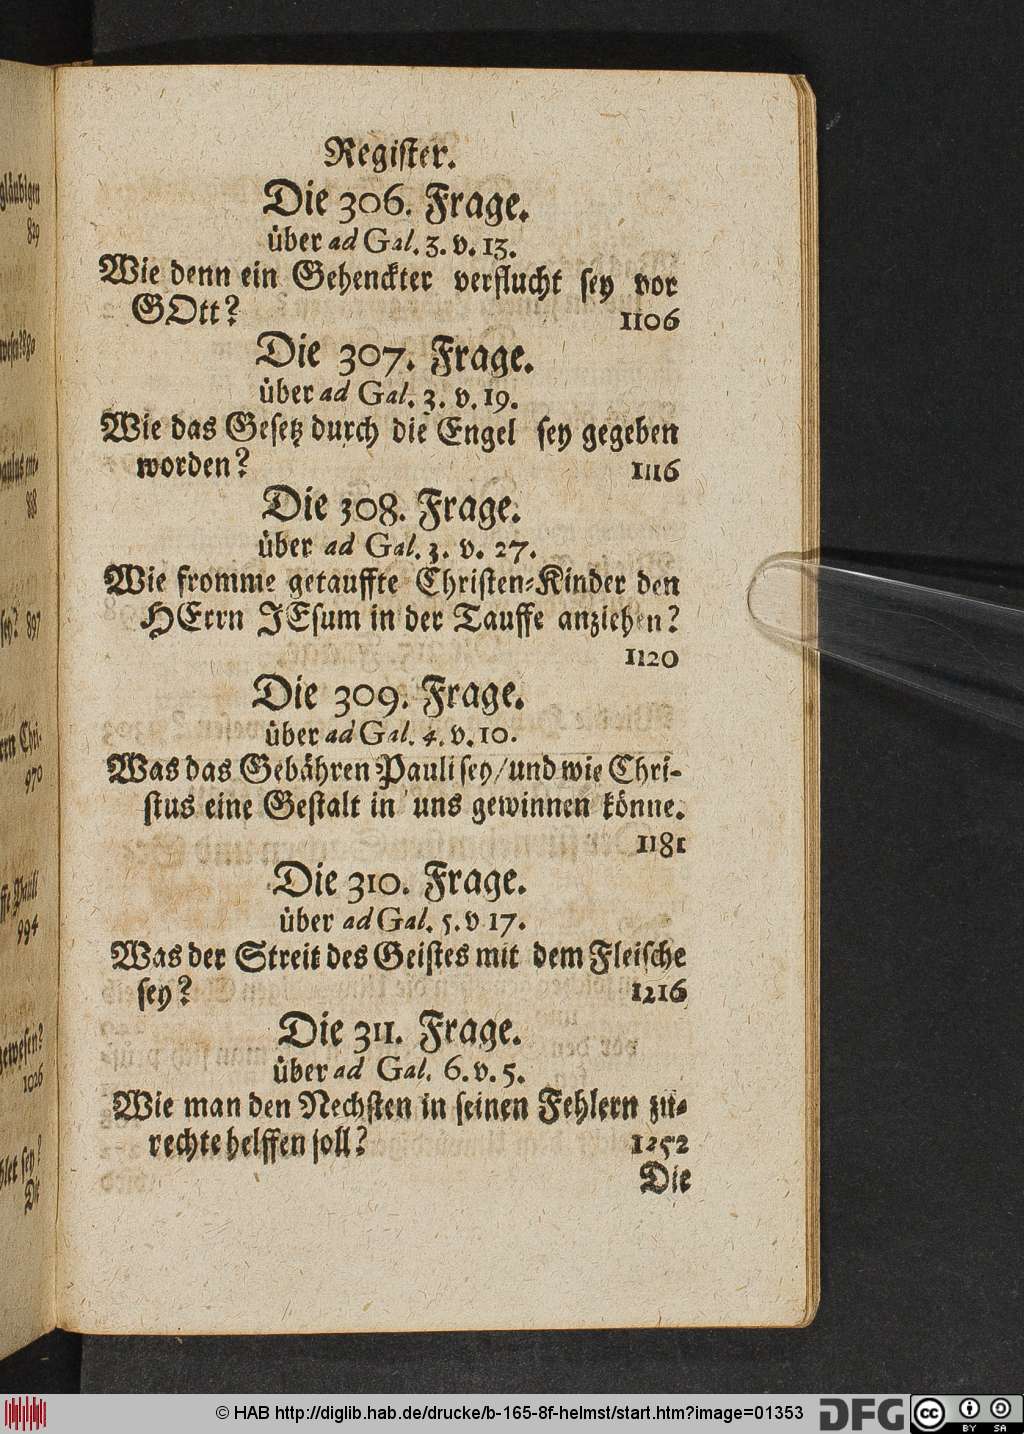 Register.
Die 306. Frage.
über ad Gal. 3. v. 13.
Wie denn ein Gehenckter verflucht sey vor
GOtt? 1106
Die 307. Frage.
über ad Gal. 3. v. 19.
Wie das Gesetz durch die Engel sey gegeben
worden? 1116
Die 308. Frage.
über ad Gal. 3. v. 27.
Wie fromme getauffte Christen-Kinder den
HErrn JEsum in der Tauffe anziehen?
1120
Die 309. Frage.
über ad Gal. 4. v. 10.
Was das Gebähren Pauli sey/und wie Chri-
stus eine Gestalt in uns gewinnen könne.
1181
Die 310. Frage.
über ad Gal. 5. v 17.
Was der Streit des Geistes mit dem Fleische
sey? 1216
Die 311. Frage.
über ad Gal. 6. v. 5.
Wie man den Nechsten in seinen Fehlern zu-
rechte helffen soll? 1252
Die
gläubigen
829
888
sey? 897
970
994
gewesen?
1026
Die
© HAB http://diglib.hab.de/drucke/b-165-8f-helmst/start.htm?image=01353
DFG
cc BY SA